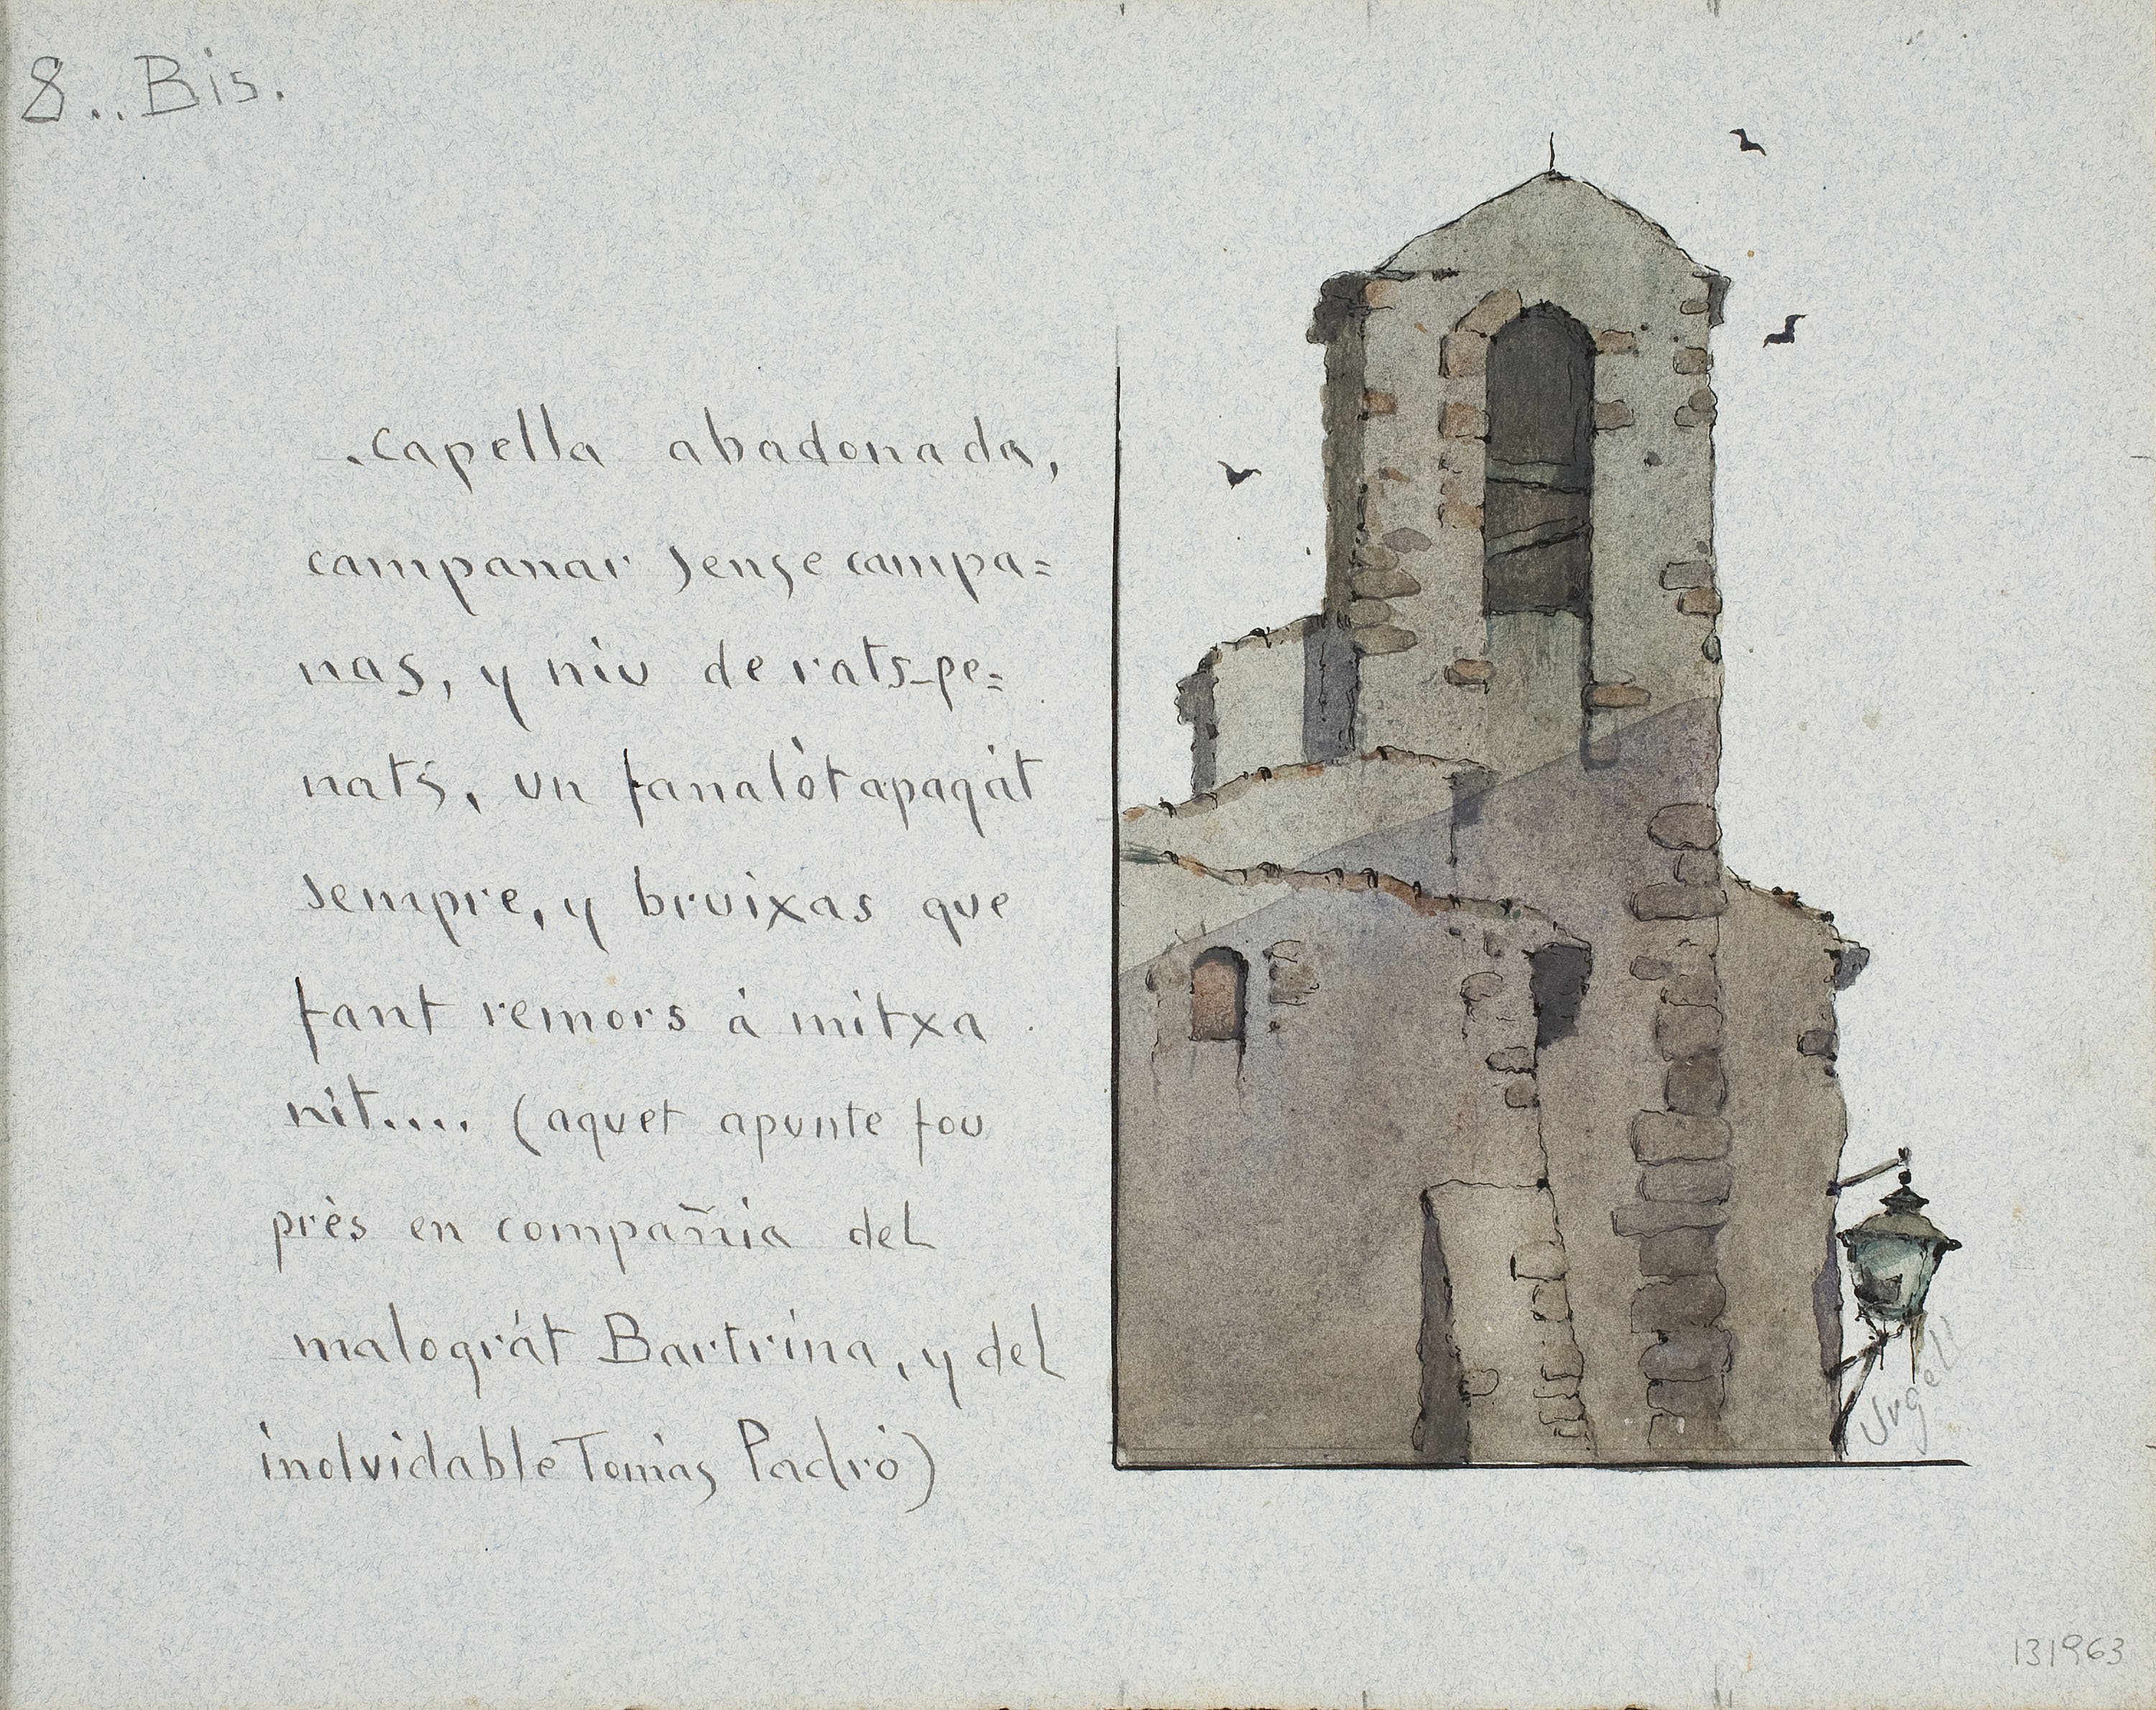 8.. Bis.
.Capella abadonada,
campanar sense campa=
nas, y niu de rats-pe=
nats, un fanalòt apagát
sempre, y bruixas que
fant remors á mitxa
nit.... (aquet apunte fou
près en compañia del
malográt Bartrina, y del
inolvidable Tomas Padró)
Urgell
131963